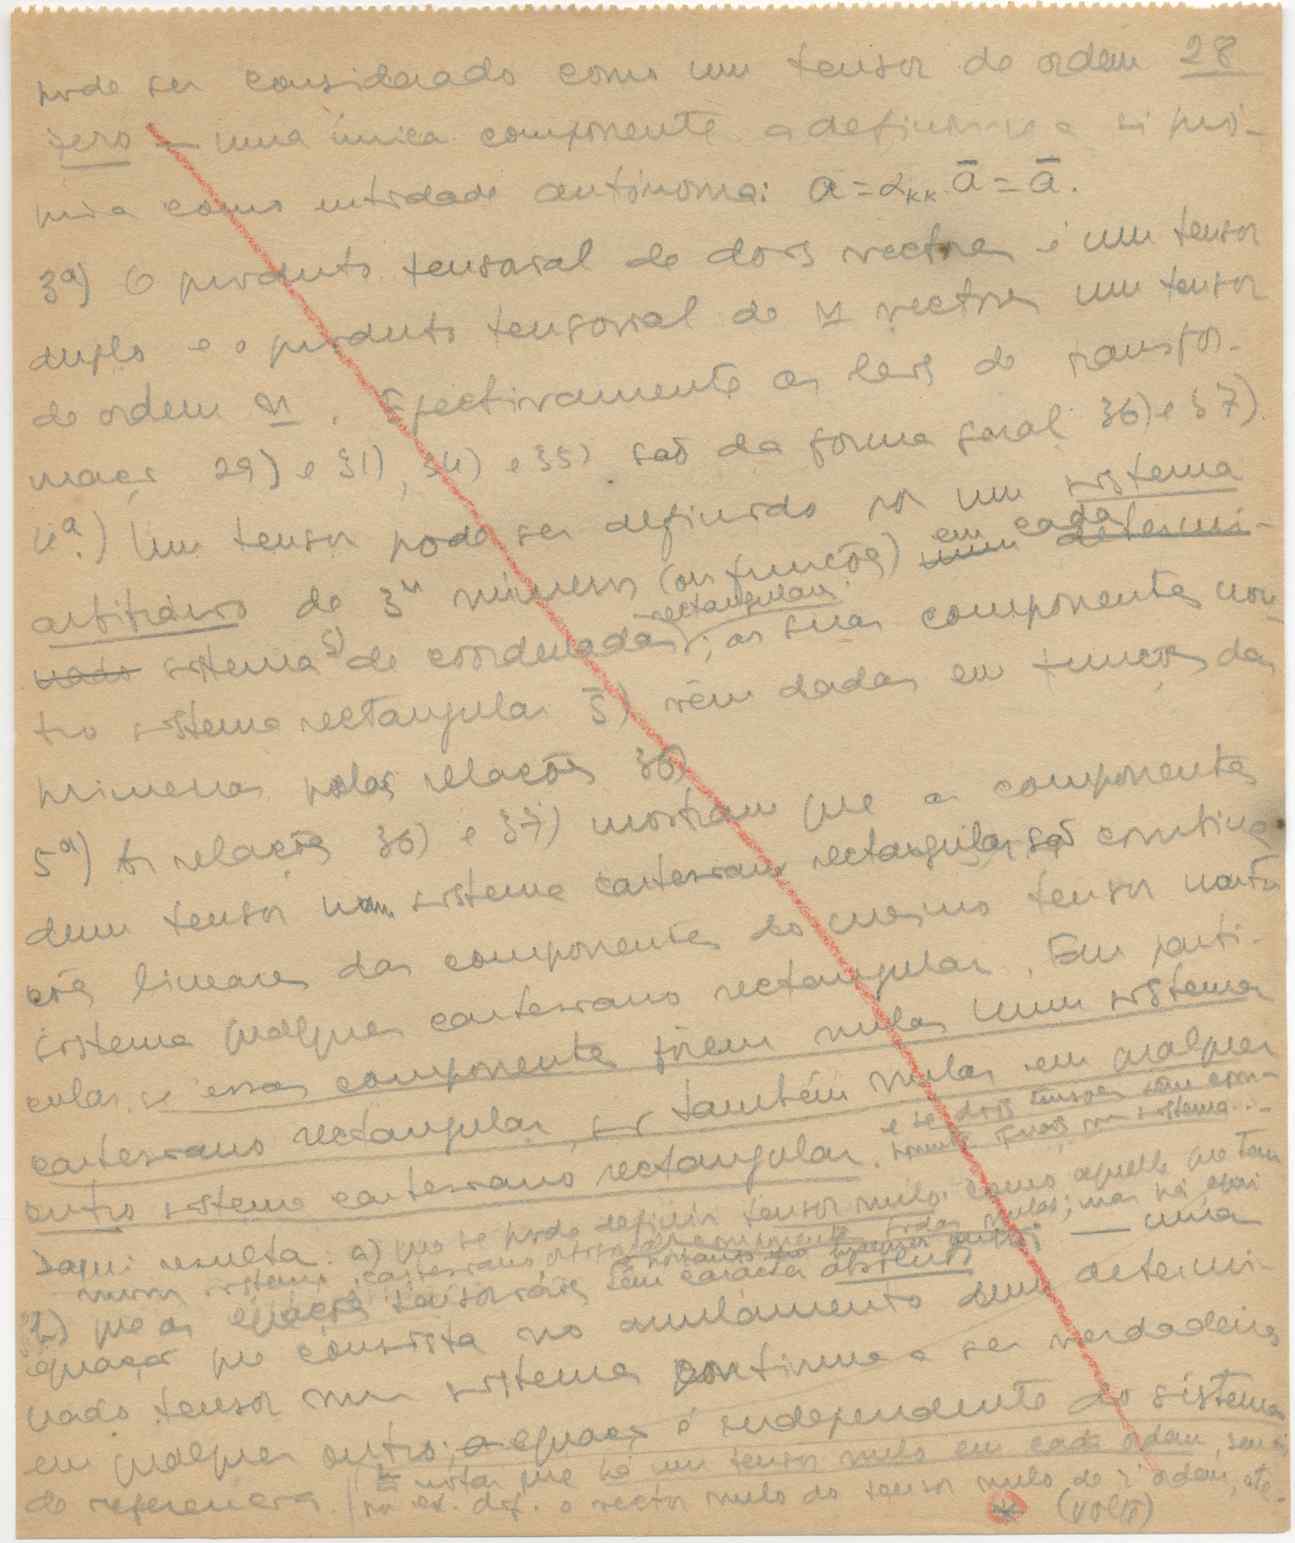 pode ser considerado como um tensor de ordem 28
zero — uma única componente a definir-se a si pró-
pria como entidade autónoma: a = α_kk ā = ā.
3ª) O produto tensorial de dois vectores é um tensor
duplo e o produto tensorial de n vectores um tensor
de ordem n. Efectivamente as leis de transfor-
mação 29) e 31), 34) e 35) são da forma geral 36) e 37).
4ª) Um tensor pode ser definido por um sistema
arbitrário de 3ⁿ números (ou funções) num determi-
em cada
nado sistema S) de coordenadas; as suas componentes nou-
rectangulares
tro sistema rectangular S̄) vêm dadas em funções das
primeiras pelas relações 36)
5ª) As relações 36) e 37) mostram que as componentes
dum tensor num sistema cartesiano rectangular são
ções lineares das componentes do mesmo tensor noutro
sistema qualquer cartesiano rectangular. Em parti-
cular, se essas componentes forem nulas num sistema
cartesiano rectangular, são também nulas em qualquer
outro sistema cartesiano rectangular. e se dois tensores têm
iguais num sistema...
Daqui resulta a) que se pode definir tensor nulo como aquele que tem
num sistema cartesiano todas nulas; mas há
b) que as equações tensoriais têm carácter absoluto — uma
equação que consista no anulamento dum determi-
nado tensor num sistema continua a ser verdadeira
em qualquer outro; a equação é independente do sistema
de referência. notar que há um tensor nulo em cada ordem,
o vector nulo do tensor nulo de 2ª ordem, etc.
* (volta)